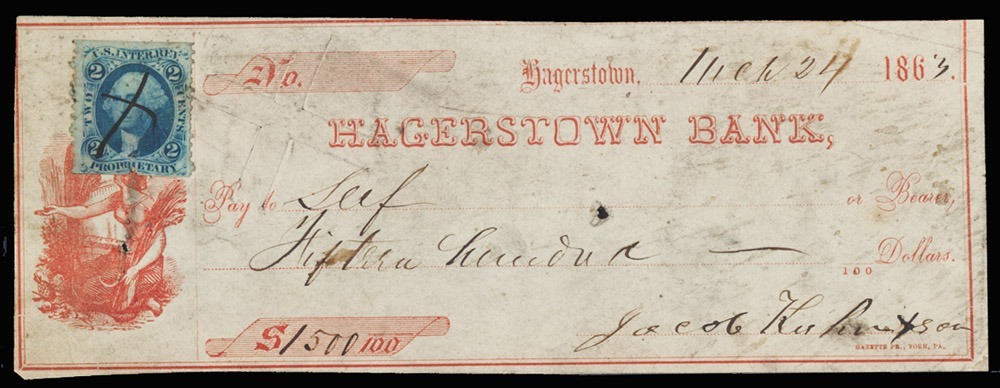 U.S. INTER. REV.
2 2
TWO CENTS
2 2
PROPRIETARY
No.
Hagerstown, Mch 24 1863.
HAGERSTOWN BANK,
Pay to Self or Bearer,
Fifteen hundred — 100 Dollars.
$1500 100
Jacob &son
GAZETTE PR., YORK, PA.